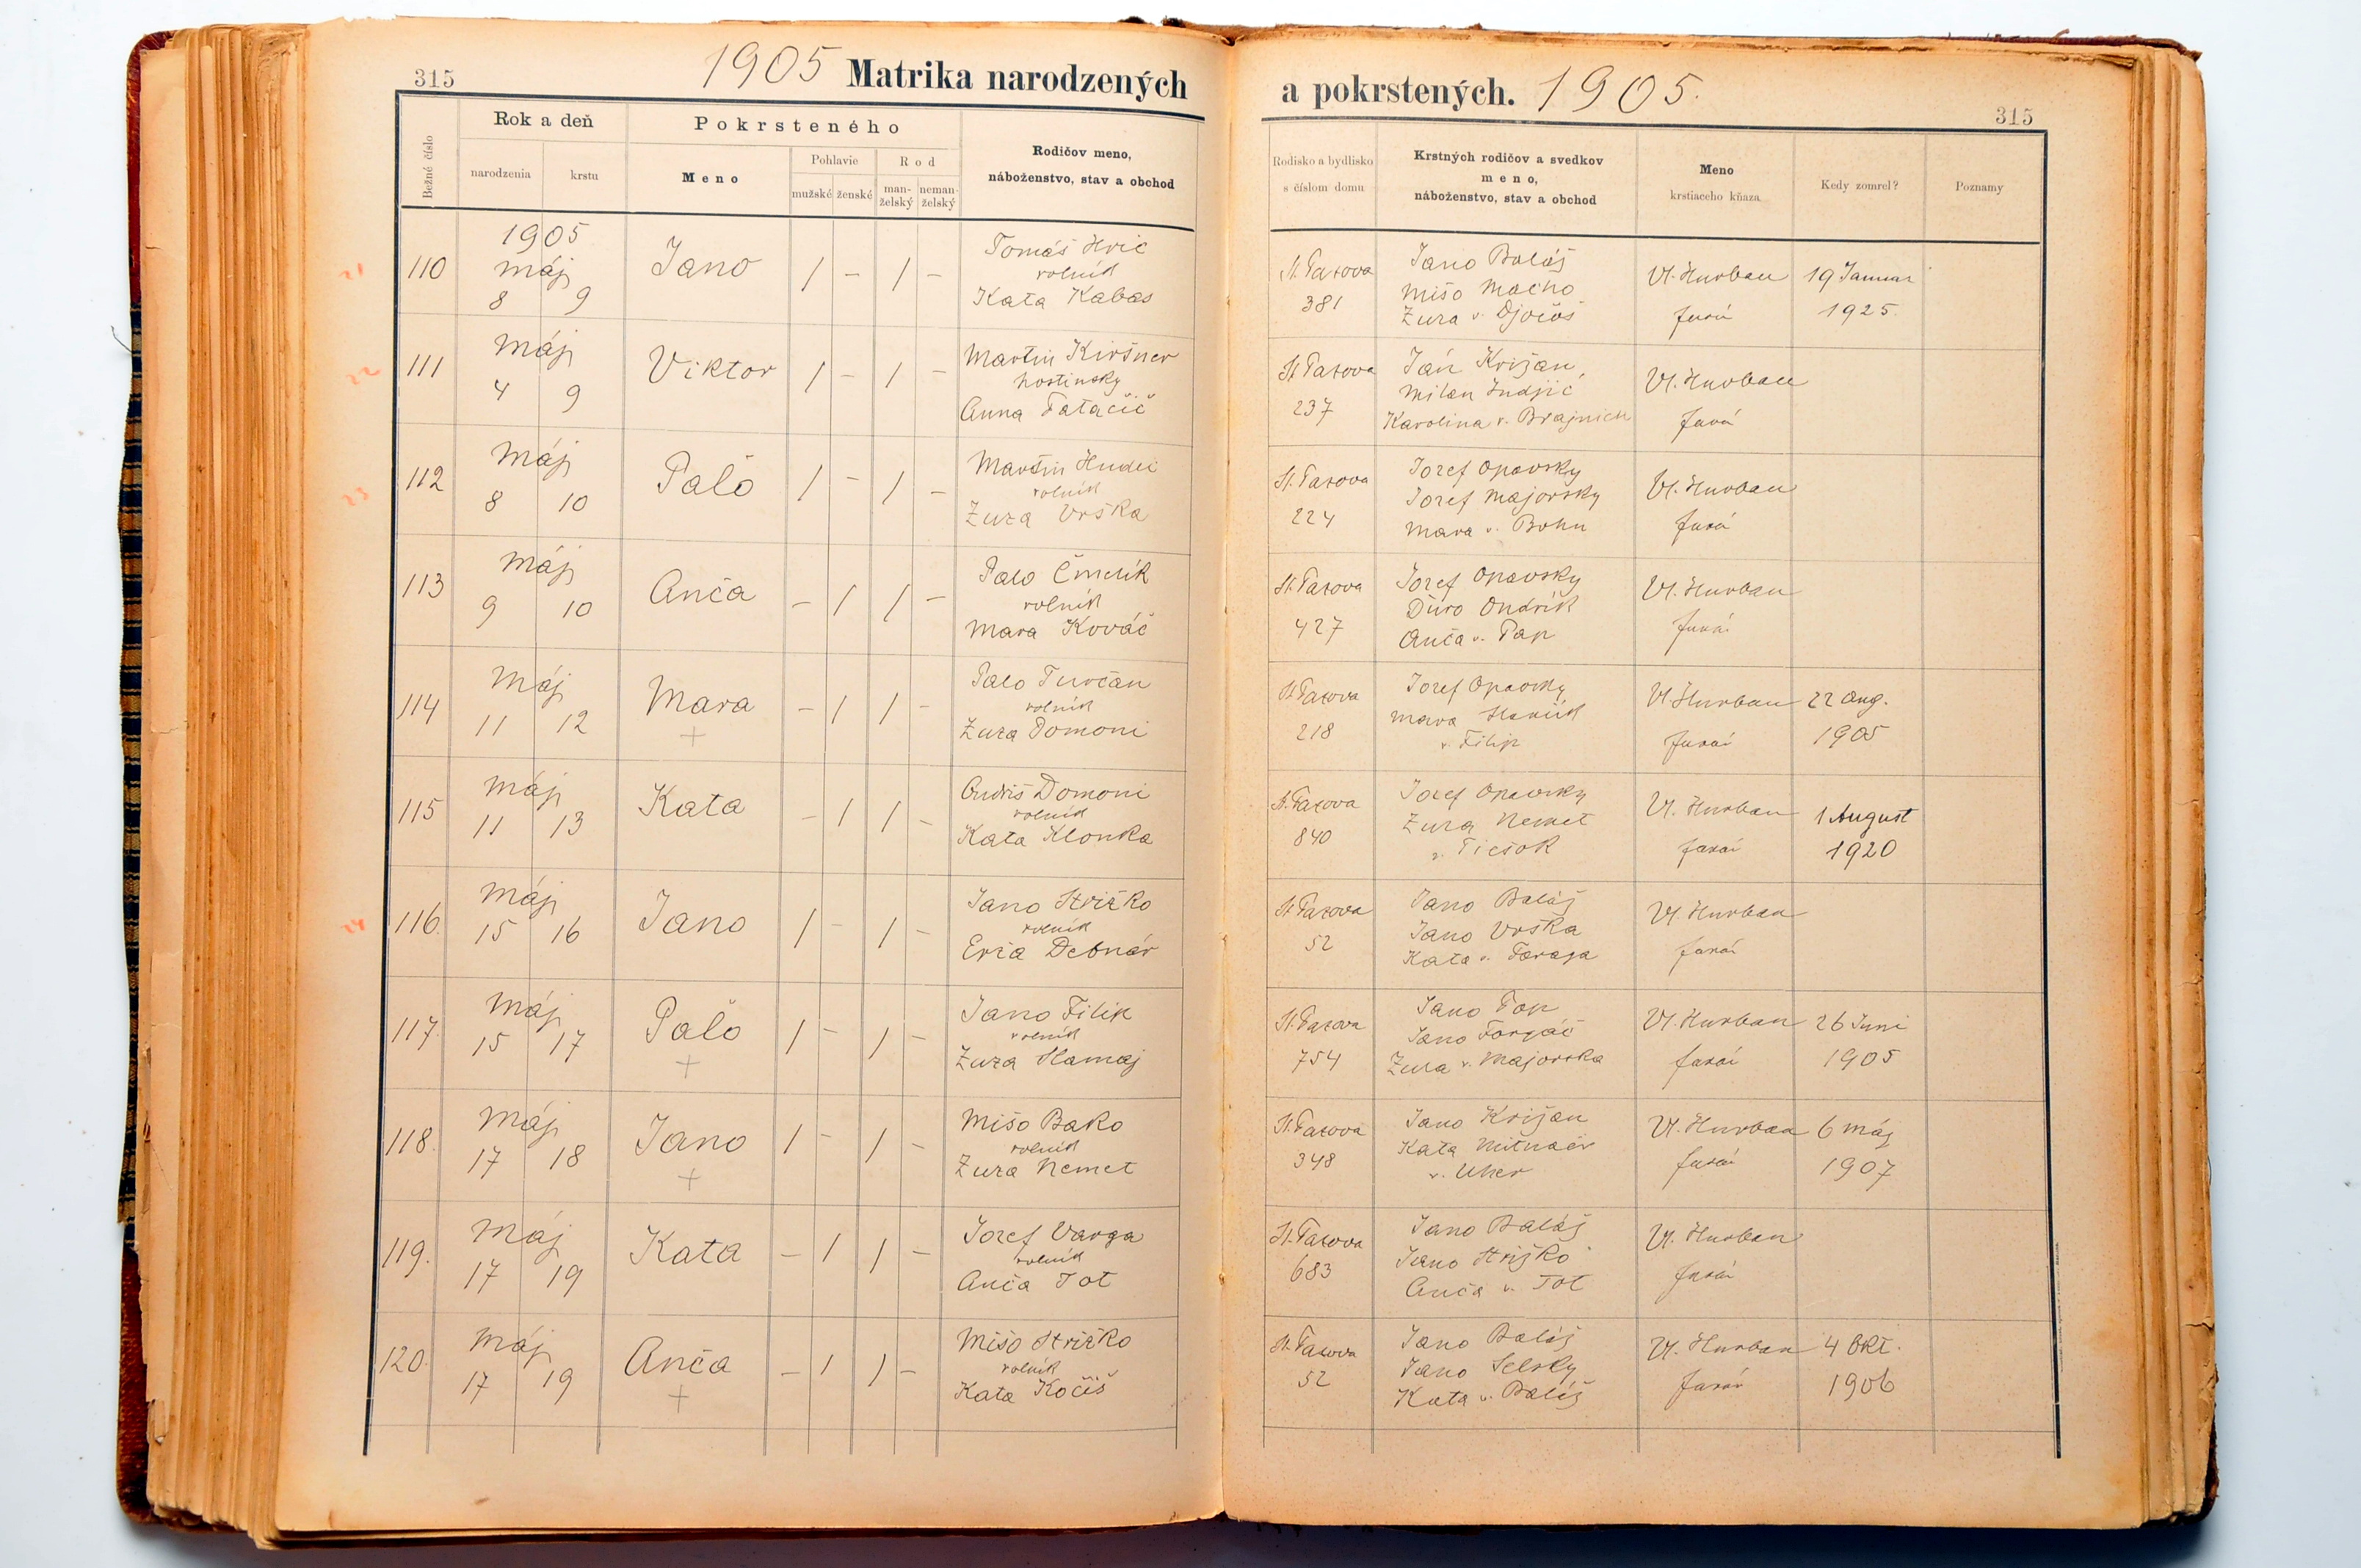 315
1905 Matrika narodzených
Bežné číslo
Rok a deň
narodzenia
krstu
Pokrsteného
Meno
Pohlavie
mužské ženské
Rod
man-
želský
neman-
želský
Rodičov meno,
náboženstvo, stav a obchod
110
1905
máj
8 9
Jano
/ - / -
Tomáš Hric
rolník
Kata Kabas
111
máj
4 9
Viktor
/ - / -
Martin Kiršner
hostinsky
Anna Tatačič
112
máj
8 10
Palo
/ - / -
Martin
rolník
Zuza Vrška
113
máj
9 10
Anča
- / / -
Palo Čmelík
rolník
Mara Kováč
114
máj
11 12
Mara
+
- / / -
Palo Turčan
rolník
Zuza Domoni
115
máj
11 13
Kata
- / / -
Ondriš Domoni
rolník
Kata Klonka
116.
máj
15 16
Jano
/ - / -
Jano Strižko
rolník
Erža Debnár
117.
máj
15 17
Palo
+
/ - / -
Jano Filip
rolník
Zuza Hamaj
118.
máj
17 18
Jano
+
/ - / -
Mišo Bako
rolník
Zuza Nemet
119.
máj
17 19
Kata
- / / -
Jozef Varga
rolník
Anča Tot
120.
máj
17 19
Anča
+
- / / -
Mišo Strižko
rolník
Kata Kočiš
a pokrstených. 1905.
315
Rodisko a bydlisko
s číslom domu
Krstných rodičov a svedkov
meno,
náboženstvo, stav a obchod
Meno
krstiaceho kňaza
Kedy zomrel?
Poznamy
St. Pazova
381
Jano Baláž
Mišo Macho
Zuza v.
Vl. Hurban
farár
19 Januar
1925.
St. Pazova
237
Ján Križan,
Milan Indjić
Karolina v. Brajnich
Vl. Hurban
farár
St. Pazova
224
Jozef Opavsky
Jozef Majorsky
Mara v. Bohu
Vl. Hurban
farár
St. Pazova
427
Jozef Opavsky
Ďuro Ondrík
Anča v. Pap
Vl. Hurban
farár
St. Pazova
218
Jozef Opavsky
Mara
v. Filip
Vl. Hurban
farár
22 Aug.
1905
St. Pazova
840
Jozef Opavsky
Zuza Nemet
v.
Vl. Hurban
farár
1 August
1920
St. Pazova
52
Jano Baláž
Jano Vrška
Kata v. Faraga
Vl. Hurban
farár
St. Pazova
754
Jano Pop
Jano Forgáč
Zuza v. Majorska
Vl. Hurban
farár
26 Juni
1905
St. Pazova
348
Jano Križan
Kata
v. Uher
Vl. Hurban
farár
6 máj
1907
St. Pazova
683
Jano Baláž
Jano Strižko
Anča v. Tot
Vl. Hurban
farár
St. Pazova
52
Jano Baláž
Jano Selsky
Kata v. Baláž
Vl. Hurban
farár
4 Okt.
1906